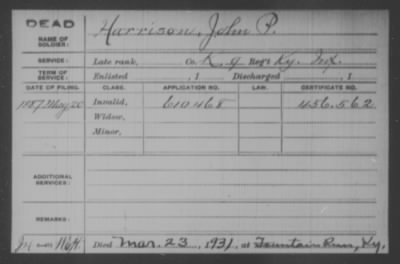 DEAD
NAME OF SOLDIER: Harrison, John P.
SERVICE: Late rank, Co. K, 9 Reg't Ky. Inf.
TERM OF SERVICE: Enlisted , 1 Discharged , 1
DATE OF FILING. CLASS. APPLICATION NO. LAW. CERTIFICATE NO.
1887 May 20 Invalid, 610468 456.562
Widow,
Minor,
ADDITIONAL SERVICES:
REMARKS:
Died Mar. 23, 1931, at Fountain Run, Ky.